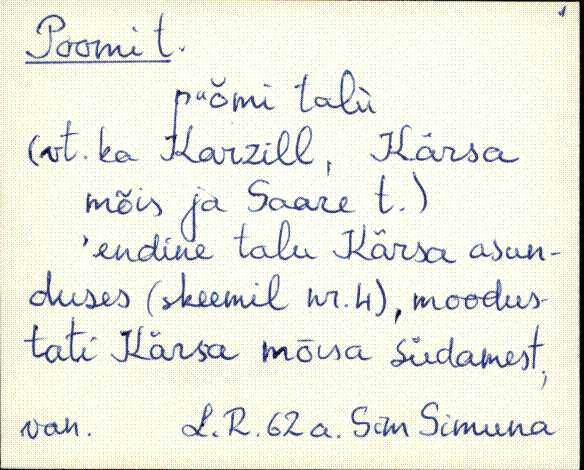 Poomi t.
pᵘŏmi talù
(vt. ka Karzill, Kärsa
mõis ja Saare t.)
'endine talu Kärsa asun-
duses (skeemil nr. 4), moodus-
tati Kärsa mõisa südamest,
van. L.R. 62 a. Sim Simuna